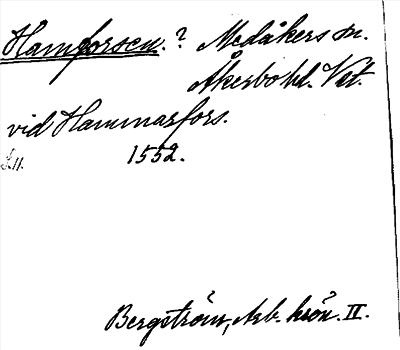 Hamforsen.? Medåkers sn.
Åkerbo hd. Vstm.
vid Hammarfors.
1552.
Bergström, Arb. krön. II.